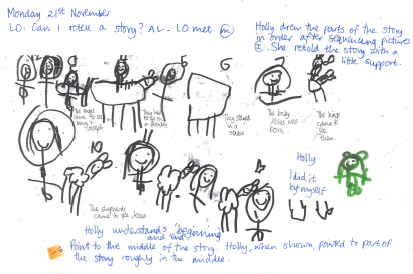 Monday 21st November
LO: Can I retell a story? AL - LO met m
Holly drew the parts of the story
in order after sequencing pictures
I. She retold the story with a
little support.
The angel
came to see
Mary +
Joseph
They had
to go on
a donkey
They stayed
in a
stable
The baby
Jesus was
born
The kings
came to
see
them
The shepherds
came to see Jesus
Holly
I did it
by myself
Holly understands 'beginning'
and 'end'
Point to the middle of the story. Holly, when shown, pointed to part of
the story roughly in the middle.